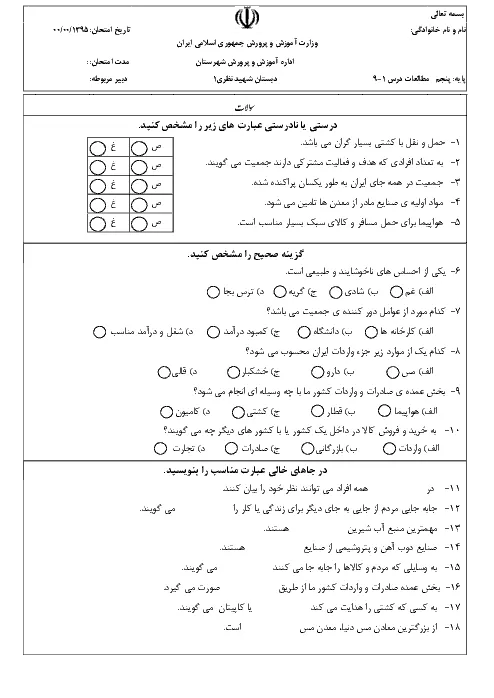 بسمه تعالی
نام و نام خانوادگی:
تاریخ امتحان: ۰۰/۰۰/۱۳۹۵
وزارت آموزش و پرورش جمهوری اسلامی ایران
اداره آموزش و پرورش شهرستان
مدت امتحان::
پایه: پنجم مطالعات درس ۱-۹
دبستان شهید نظری۱
دبیر مربوطه:
سوالات
درستی یا نادرستی عبارت های زیر را مشخص کنید.
۱- حمل و نقل با کشتی بسیار گران می باشد. ص غ
۲- به تعداد افرادی که هدف و فعالیت مشترکی دارند جمعیت می گویند. ص غ
۳- جمعیت در همه جای ایران به طور یکسان پراکنده شده. ص غ
۴- مواد اولیه ی صنایع مادر از معدن ها تامین می شود. ص غ
۵- هواپیما برای حمل مسافر و کالای سبک بسیار مناسب است. ص غ
گزینه صحیح را مشخص کنید.
۶- یکی از احساس های ناخوشایند و طبیعی است.
الف) غم ب) شادی ج) گریه د) ترس بجا
۷- کدام مورد از عوامل دور کننده ی جمعیت می باشد؟
الف) کارخانه ها ب) دانشگاه ج) کمبود درآمد د) شغل و درآمد مناسب
۸- کدام یک از موارد زیر جزء واردات ایران محسوب می شود؟
الف) مس ب) دارو ج) خشکبار د) قالی
۹- بخش عمده ی صادرات و واردات کشور ما با چه وسیله ای انجام می شود؟
الف) هواپیما ب) قطار ج) کشتی د) کامیون
۱۰- به خرید و فروش کالا در داخل یک کشور یا با کشور های دیگر چه می گویند؟
الف) واردات ب) بازرگانی ج) صادرات د) تجارت
در جاهای خالی عبارت مناسب را بنویسید.
۱۱- در همه افراد می توانند نظر خود را بیان کنند.
۱۲- جابه جایی مردم از جایی به جای دیگر برای زندگی یا کار را می گویند.
۱۳- مهمترین منبع آب شیرین هستند.
۱۴- صنایع ذوب آهن و پتروشیمی از صنایع هستند.
۱۵- به وسایلی که مردم و کالاها را جابه جا می کنند می گویند.
۱۶- بخش عمده صادرات و واردات کشور ما از طریق صورت می گیرد.
۱۷- به کسی که کشتی را هدایت می کند یا کاپیتان می گویند.
۱۸- از بزرگترین معادن مس دنیا، معدن مس است.